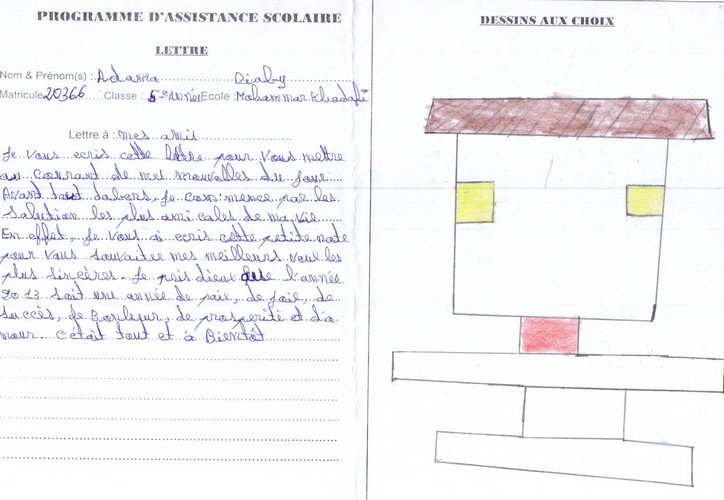 PROGRAMME D'ASSISTANCE SCOLAIRE
LETTRE
Nom & Prénom(s) : Adama Diaby
Matricule 20366 Classe : 5e Année Ecole : Mohammar Khadafi
Lettre à : mes amis
Je vous ecris cette lettre pour vous mettre
au courant de mes nouvelles du jour
Avant tout dabors, je commence par les
salution les plus amicales de ma vie
En effet, je vous ai ecris cette petite note
pour vous souvaiter mes meilleurs veux les
plus sincères. Je pris dieux que l'année
2013 soit une année de paix, de joie, de
succès, de Bonheur, de prosperité et d'a
mour. C'était tout et à Bientôt
DESSINS AUX CHOIX